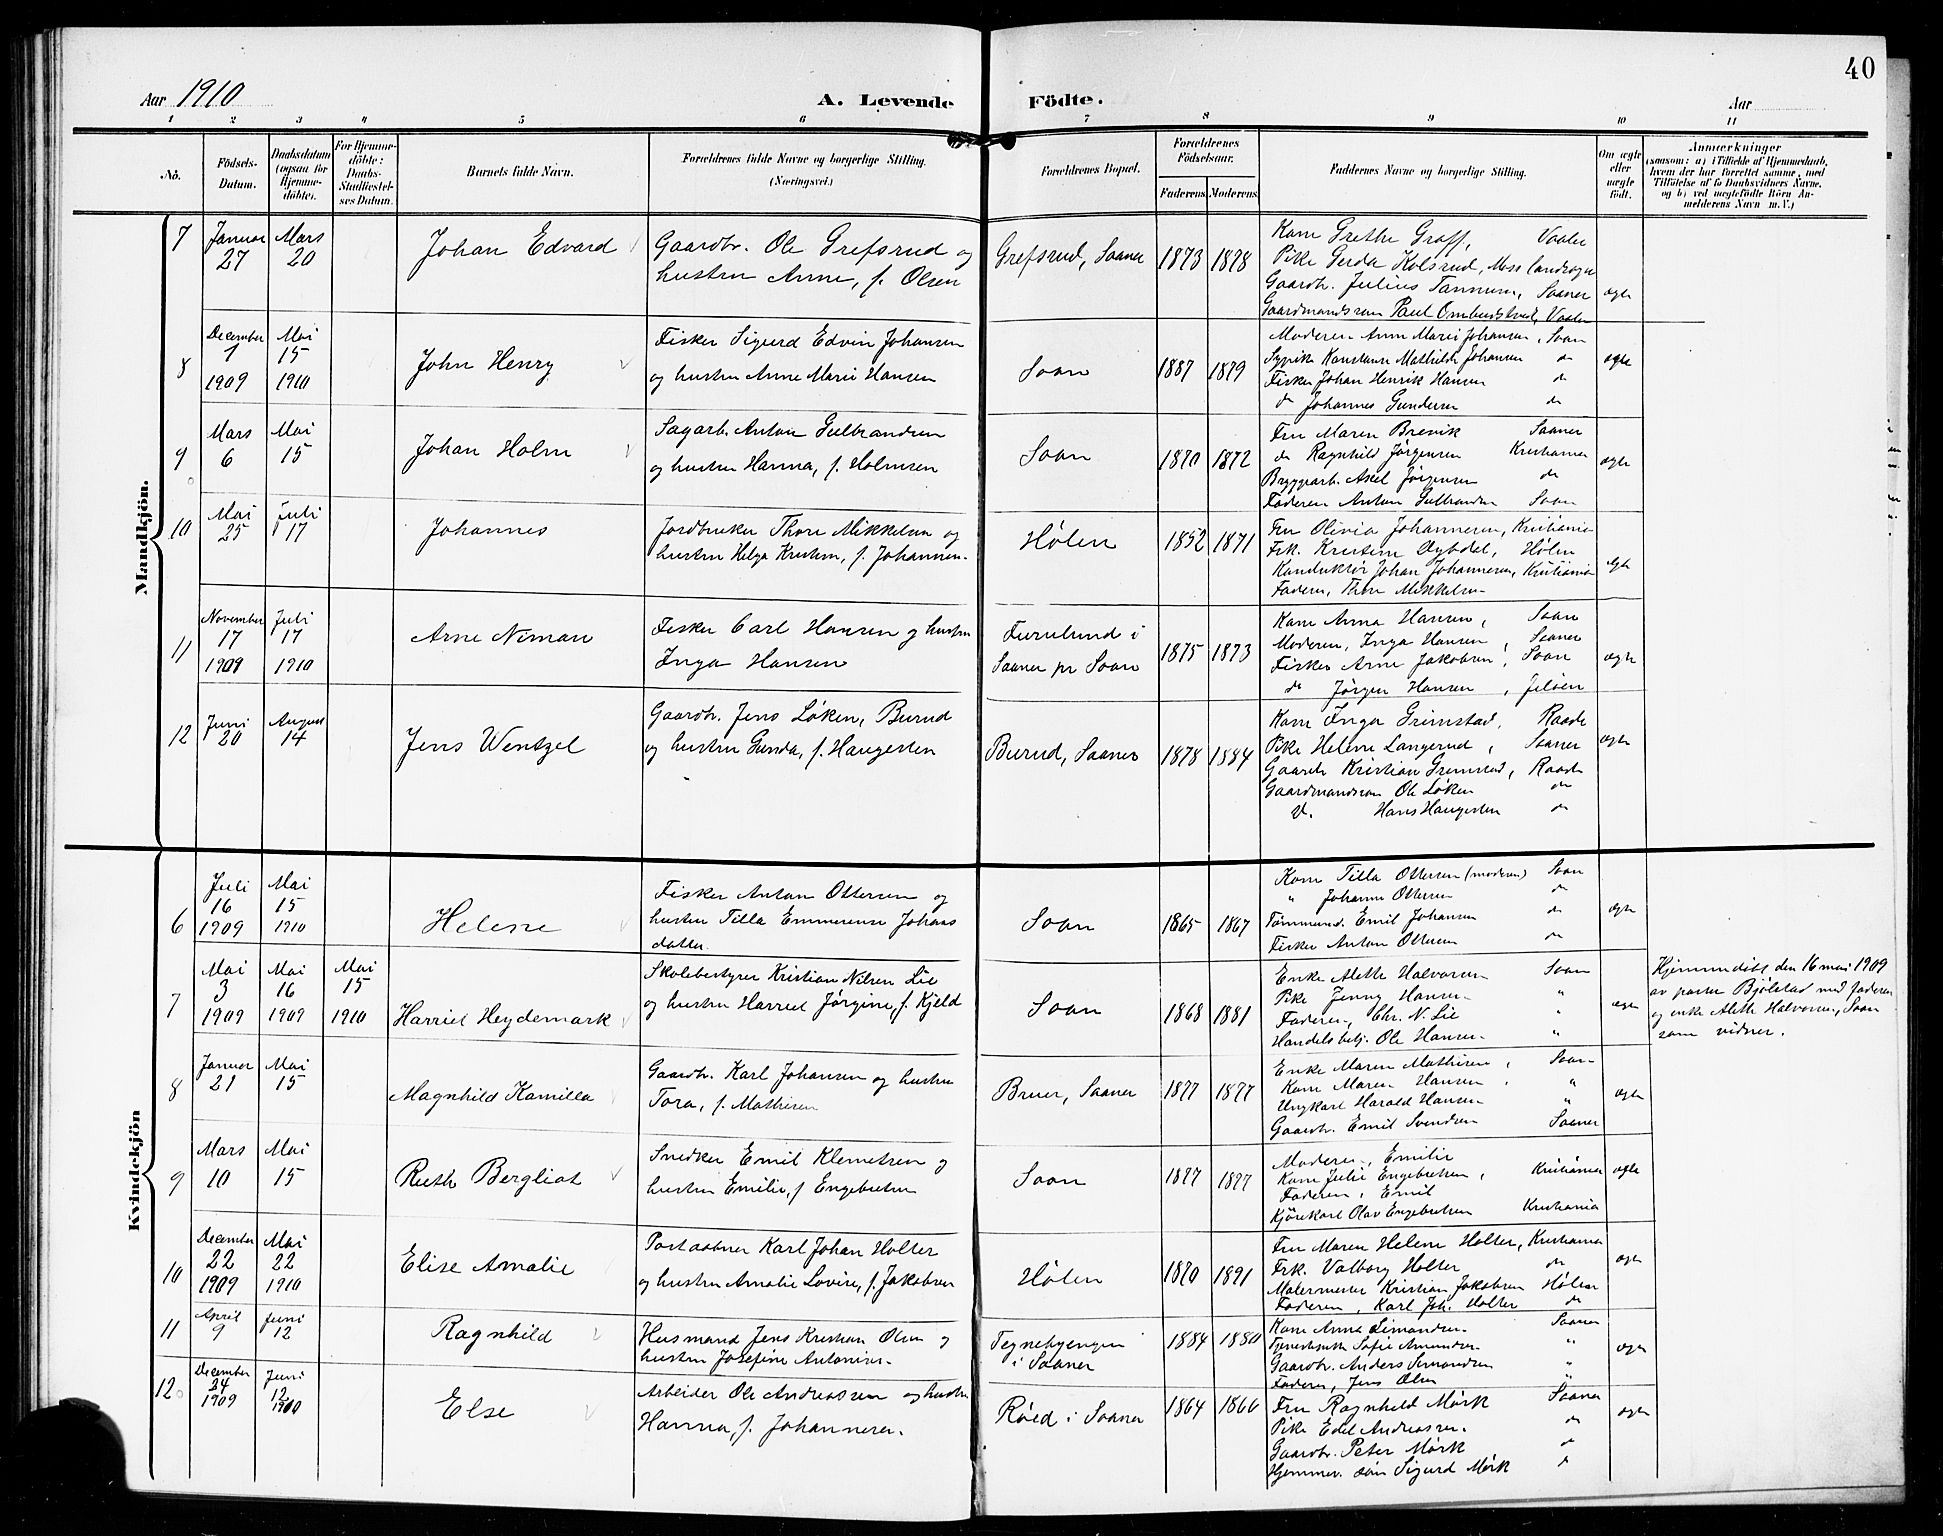 40
Aar 1910
A. Levende
Födte.
Aar
1 2 3 4 5 6 7 8 9 10 11
No.
Födsels-
Datum.
Daabsdatum
(ogsaa for
Hjemme-
döbte).
For Hjemme-
döbte:
Daabs-
Stadfæstel-
ses Datum.
Barnets fulde Navn.
Forældrenes fulde Navne og borgerlige Stilling.
(Næringsvei.)
Forældrenes Bopæl.
Forældrenes
Födselsaar.
Faderens Moderens
Faddernes Navne og borgerlige Stilling.
Om ægte
eller
uægte
födt.
Anmærkninger
(saasom: a) i Tilfælde af Hjemmedaab,
hvem der har forrettet samme, med
Tilföielse af to Daabsvidners Navne,
og b) ved uægtefödte Börn An-
melderens Navn m. V.)
Mandkjön.
7
Januar
27
Mars
20
Johan Edvard
Gaardbr. Ole Grefsrud og
hustru Anne, f. Olsen
Grefsrud, Saaner
1873
1878
Kone Grethe Graff, Vaaler
Pike Gerda Kolsrud, Moss landsogn
Gaardbr. Julius Tannum, Saaner
Gaardmandssøn Paul Ombudstvedt, Vaaler
ægte
8
December
1
1909
Mai
15
1910
John Henry
Fisker Sigurd Edvin Johansen
og hustru Anne Marie Hansen
Soon
1887
1879
Moderen Anne Marie Johansen, Soon
Sypike Konstanse Mathilde Johansen do
Fisker Johan Henrik Hansen do
do Johannes Gundersen do
ægte
9
Mars
6
Mai
15
Johan Holm
Sagarb. Anton Gulbrandsen
og hustru Hanna, f. Holmsen
Soon
1870
1872
Fru Maren Brevik Saaner
do Ragnhild Jørgensen Kristiania
Bryggearb. Aksel Jørgensen do
Faderen Anton Gulbrandsen Soon
ægte
10
Mai
25
Juli
17
Johannes
Jordbruker Thore Mikkelsen og
hustru Helga Kristine, f. Johannesen
Hølen
1852
1871
Fru Olivia Johannesen, Kristiania
Frk. Kristine Hølen
Konduktør Johan Johannesen, Kristiania
Faderen, Thore Mikkelsen
ægte
11
November
17
1909
Juli
17
1910
Arne Niman
Fisker Carl Hansen og hustru
Inga Hansen
Furulund i
Saaner pr Soon
1875
1873
Kone Anna Hansen, Soon
Moderen, Inga Hansen, Saaner
Fisker Arne Jakobsen, Soon
do Jørgen Hansen, Jeløen
ægte
12
Juni
20
August
14
Jens Wentzel
Gaardbr. Jens Løken, Burud
og hustru Gunda, f. Haugesten
Burud, Saaner
1878
1884
Kone Inga Grimstad, Raade
Pike Helene Langerud, Saaner
Gaardb. Kristian Grimstad, Raade
Gaardmandssøn Ole Løken do
Hans Haugesten do
ægte
Kvindekjön
6
Juli
16
1909
Mai
15
1910
Helene
Fisker Anton Ottersen og
hustru Tilla Emmerense Johans
datter.
Soon
1865
1867
Kone Tilla Ottersen (moderen) Soon
" Johanne Ottersen do
Tømmermd. Emil Johansen do
Fisker Anton Ottersen do
ægte
7
Mai
3
1909
Mai
16
1909
Mai
15
1910
Harriet Heydemark
Skolebestyrer Kristian Nilsen Lie
og hustru Harriet Jørgine, f. Kjeld
Soon
1868
1881
Enke Alethe Halvorsen Soon
Pike Jenny Hansen "
Faderen, Chr. N. Lie "
Handelsbetj. Ole Hansen "
ægte
Hjemmedøbt den 16 mai 1909
av pastor Bjølstad med faderen
og enke Alethe Halvorsen, Soon
som vidner.
8
Januar
21
Mai
15
Magnhild Kamilla
Gaardbr. Karl Johansen og hustru
Tora, f. Mathisen
Bruer, Saaner
1877
1877
Enke Maren Mathisen, Soon
Kone Maren Hansen, "
Ungkarl Harald Hansen "
Gaardbr. Emil Svendsen Saaner
ægte
9
Mars
10
Mai
15
Ruth Bergliot
Snedker Emil Klemetsen og
hustru Emilie, f Engebretsen
Soon
1877
1877
Moderen, Emilie
Kone Julie Engebretsen, Kristiania
Faderen, Emil
Kjørekarl Olav Engebretsen Kristiania
ægte
10
December
22
1909
Mai
22
1910
Elise Amalie
Postaabner Karl Johan Holter
og hustru Amalie Lovise, f. Jakobsen
Hølen
1870
1891
Fru Maren Helene Holter, Kristiania
Frk. Valborg Holter do
Malermester Kristian Jakobsen Hølen
Faderen, Karl Joh. Holter do
ægte
11
April
9
Juni
12
Ragnhild
Husmand Jens Kristian Olsen og
hustru Josefine Antonisen
Tegnebyengen
i Saaner
1884
1880
Kone Anna Simonsen Saaner
Sofie Amundsen "
Gaardbr. Anders Simonsen "
Faderen, Jens Olsen "
ægte
12
December
24
1909
Juni
12
1910
Else
Arbeider Ole Andreassen og hustru
Hanna, f. Johannesen.
Røed i Saaner
1864
1866
Fru Ragnhild Mørk Saaner
Pike Edel Andreassen do
Gaardbr. Peter Mørk do
Hjemmev. søn Sigurd Mørk do
ægte